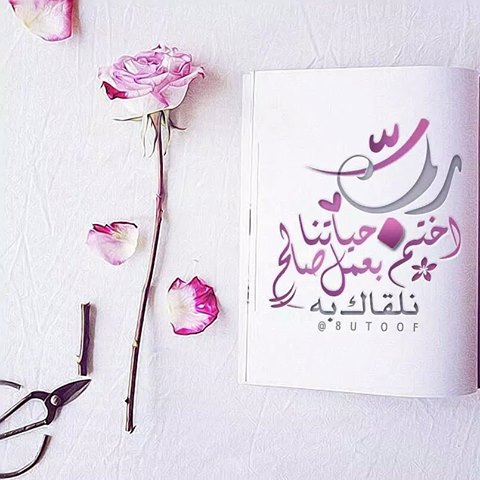 ربّ
اختم حياتنا
بعمل صالح
نلقاك به
@8UTOOF